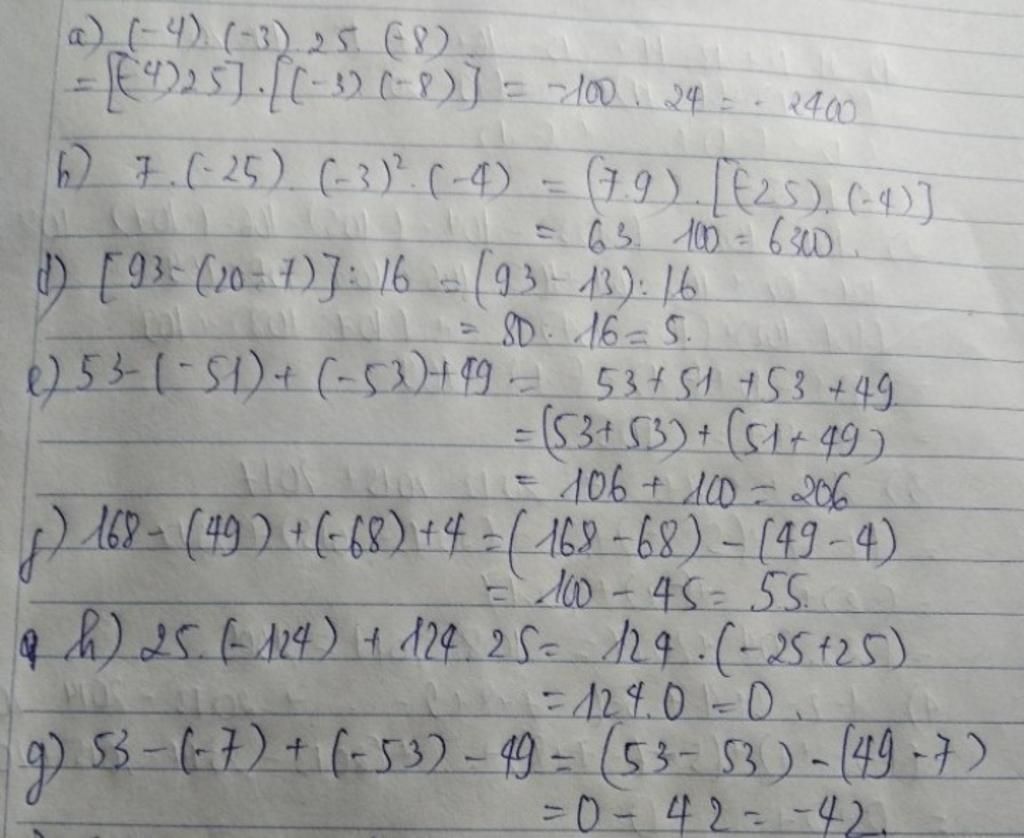 a) (-4). (-3) 25. (-8)
= [(-4)25].[(-3)(-8)] = -100. 24 = - 2400
b) 7.(-25). (-3)².(-4) = (7.9).[(-25).(-4)]
= 63. 100 = 6300.
d) [93-(20-7)]:16 = (93-13):16
= 80: 16 = 5.
e) 53-(-51)+(-53)+49 = 53+51+53+49
= (53+53)+(51+49)
= 106 + 100 = 206
f) 168-(49)+(-68)+4 = (168-68)-(49-4)
= 100 - 45 = 55.
h) 25.(-124) + 124.25 = 124.(-25+25)
= 124.0 = 0.
g) 53-(-7)+(-53)-49 = (53-53)-(49-7)
= 0 - 42 = -42.